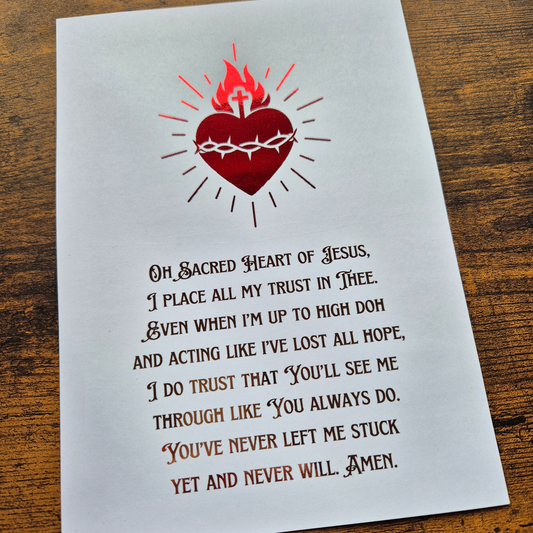 Oh Sacred Heart of Jesus,
I place all my trust in Thee.
Even when I'm up to high doh
and acting like I've lost all hope,
I do trust that You'll see me
through like You always do.
You've never left me stuck
yet and never will. Amen.